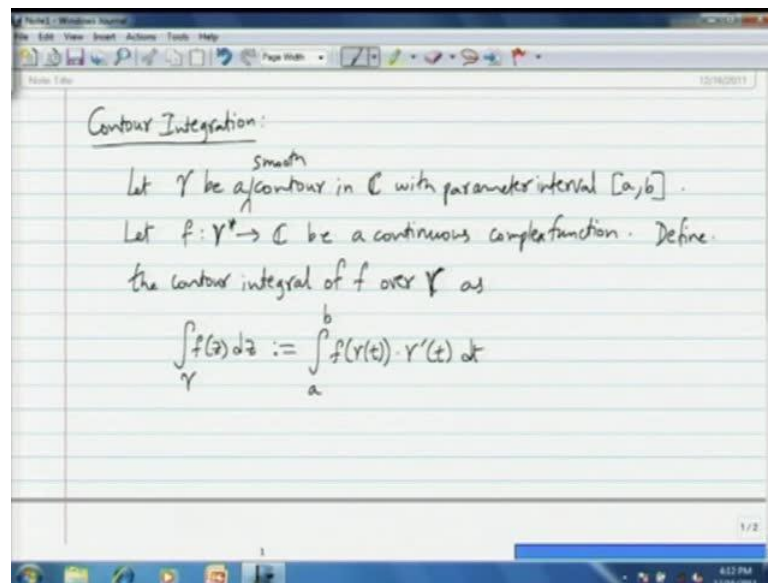 Note1 - Windows Journal
File Edit View Insert Actions Tools Help
Page Width
Note Title
12/16/2011
Contour Integration:
smooth
Let γ be a contour in ℂ with parameter interval [a,b].
Let f: γ* → ℂ be a continuous complex function. Define
the contour integral of f over γ as
∫_γ f(z) dz := ∫_a^b f(γ(t))·γ'(t) dt
1/2
1
4:12 PM